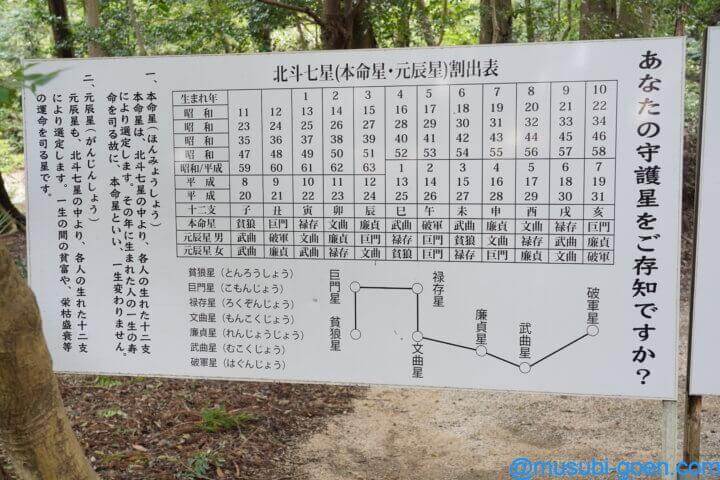 あなたの守護星をご存知ですか?
北斗七星(本命星・元辰星)割出表
生まれ年 1 2 3 4 5 6 7 8 9 10
昭和 11 12 13 14 15 16 17 18 19 20 21 22
昭和 23 24 25 26 27 28 29 30 31 32 33 34
昭和 35 36 37 38 39 40 41 42 43 44 45 46
昭和 47 48 49 50 51 52 53 54 55 56 57 58
昭和/平成 59 60 61 62 63 1 2 3 4 5 6 7
平成 8 9 10 11 12 13 14 15 16 17 18 19
平成 20 21 22 23 24 25 26 27 28 29 30 31
十二支 子 丑 寅 卯 辰 巳 午 未 申 酉 戌 亥
本命星 貪狼 巨門 禄存 文曲 廉貞 武曲 破軍 武曲 廉貞 文曲 禄存 巨門
元辰星 男 武曲 破軍 文曲 廉貞 巨門 禄存
元辰星 女 武曲 廉貞
貪狼星(とんろうしょう)
巨門星(こもんじょう)
禄存星(ろくぞんじょう)
文曲星(もんこくじょう)
廉貞星(れんじょうじょう)
武曲星(むこくじょう)
破軍星(はぐんじょう)
巨門星
貪狼星
禄存星
文曲星
廉貞星
武曲星
破軍星
一、本命星(ほんみょうしょう)
本命星は、北斗七星の中より、各人の生れた十二支
により選定します。その年に生まれた人の一生の寿
命を司る故に、本命星といい、一生変わりません。
二、元辰星(がんじんしょう)
元辰星も、北斗七星の中より、各人の生れた十二支
により選定します。一生の間の貧富や、栄枯盛衰等
の運命を司る星です。
@musubi-goen.com